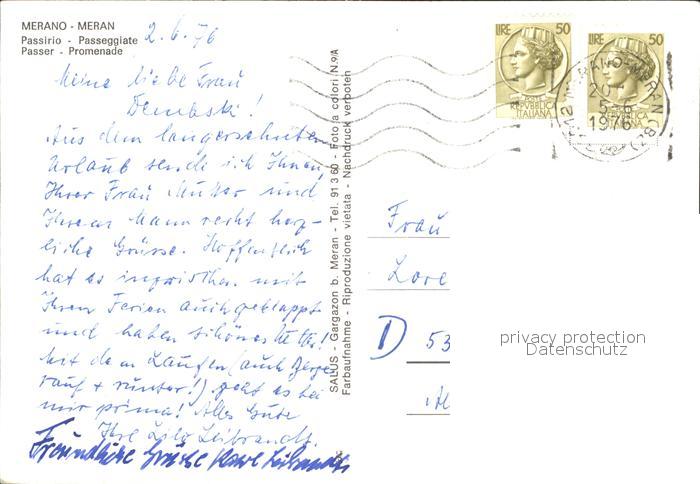 MERANO - MERAN
Passirio - Passeggiate
Passer - Promenade
2.6.76
Meine liebe Frau
Dembski!
Aus dem langersehnten
Urlaub sende ich Ihnen,
Ihrer Frau Mutter und
Ihrem Mann recht herz-
liche Grüsse. Hoffentlich
hat es inzwischen mit
Ihren Ferien auch geklappt
und haben schönes Wetter!
Mit dem Laufen (auch Berge
rauf + runter!) geht es bei
mir prima! Alles Gute
Ihre Lilo Leibrandt.
Freundliche Grüsse Karl Leibrandt
SALUS - Gargazon b. Meran - Tel. 91 3 60 - Foto a colori N.9/A
Farbaufnahme - Riproduzione vietata - Nachdruck verboten
LIRE 50
POSTE
REPVBBLICA
ITALIANA
LIRE 50
REPVBBLICA
ITALIANA
20
5-6
1976
Frau
Lore
D 53
privacy protection
Datenschutz